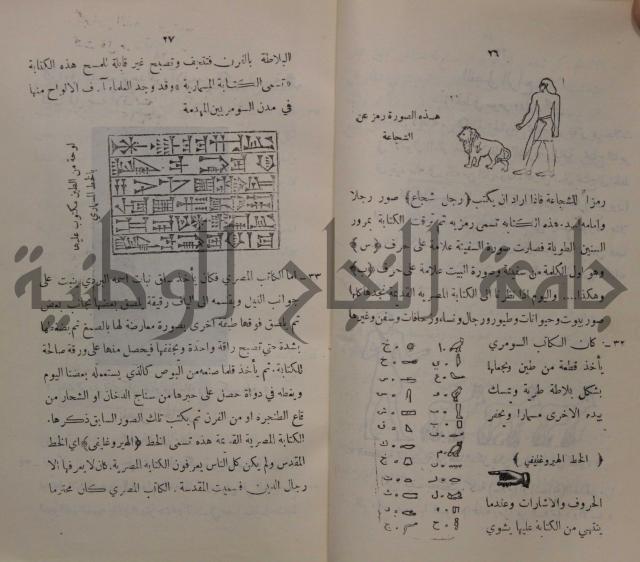 ٢٦
هذه الصورة رمز عن
الشجاعة
رمزاً للشجاعة فاذا اراد ان يكتب (رجل شجاع) صور رجلا
وامامه اسد. هذه الكتابة تسمى رمزيه ثم ترقت الكتابة بمرور
السنين الطويلة فصارت صورة السفينة علامة على حرف (س)
وهو اول الكلمة من سفينة وصورة البيت علامة على حرف (ب)
وهكذا.... واليوم اذا نظرنا الى الكتابة المصريه القديمة نجدها كلها
صور بيوت وحيوانات وطيور ورجال ونساء وزحافات وسفن وغيرها
٣٢- كان الكاتب السومري
يأخذ قطعة من طين ويجعلها
بشكل بلاطة طرية ويمسك
بيده الاخرى مسمارا ويحفر
﴿ الخط الهيروغليفي ﴾
الحروف والاشارات وعندما
ينتهي من الكتابة عليها يشوي
٢٧
البلاطة بالفرن فتجف وتصبح غير قابلة للمسح هذه الكتابة
«تسمى الكتابة المسمارية» وقد وجد العلماء آلاف الالواح منها
في مدن السومريين المهدمة
لوحة من الطين مكتوب عليها
بالخط المسماري
٣٣- اما الكاتب المصري فكان يأخذ ساق نبات اسمه البردي ينبت على
جوانب النيل ويقسمه الى الياف رقيقة يلصق بعضها بجانب بعض
ثم يلصق فوقها طبقة اخرى بصورة معارضة لها بالصمغ ثم يضغطها
بشدة حتى تصبح راقة واحدة ويجففها فيحصل منها على ورقة صالحة
للكتابة. ثم يأخذ قلما صنعه من البوص كالذي يستعمله بعضنا اليوم
ويغطه في دواة حصل على حبرها من سناج الدخان او الشحار من
قاع الطنجره او من الفرن ثم يكتب تلك الصور السابق ذكرها.
الكتابة المصرية القديمة هذه تسمى الخط (الهيروغليفي) اي الخط
المقدس ولم يكن كل الناس يعرفون الكتابة المصرية. كان لا يعرفها الا
رجال الدين. فسميت المقدسة. الكاتب المصري كان محترما
جامعة النجاح الوطنية